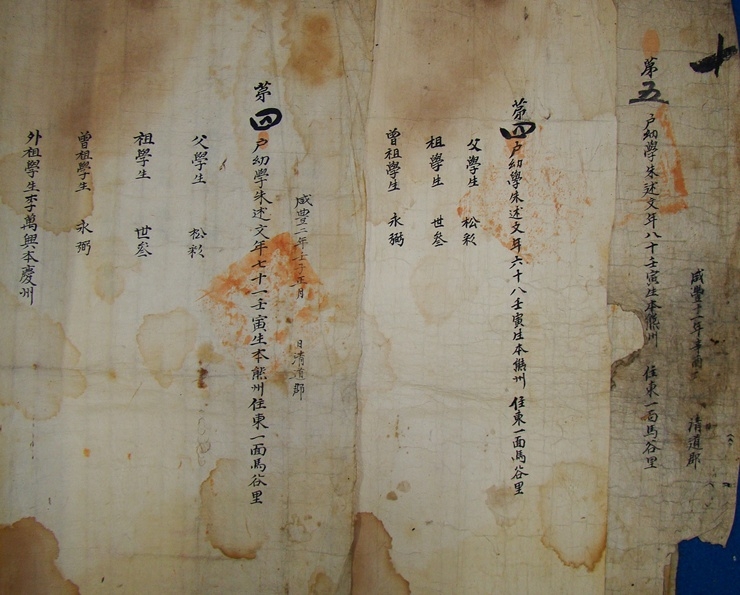 十
咸豐十一年辛酉 清道郡
第五戶幼學朱述文年八十壬寅生本熊州 住東一面馬谷里
第四戶幼學朱述文年六十八壬寅生本熊州 住東一面馬谷里
父學生 松彩
祖學生 世叄
曾祖學生 永弼
咸豐二年壬子正月 日清道郡
第四戶幼學朱述文年七十一壬寅生本熊州住東一面馬谷里
父學生 松彩
祖學生 世叄
曾祖學生 永弼
外祖學生李萬興本慶州